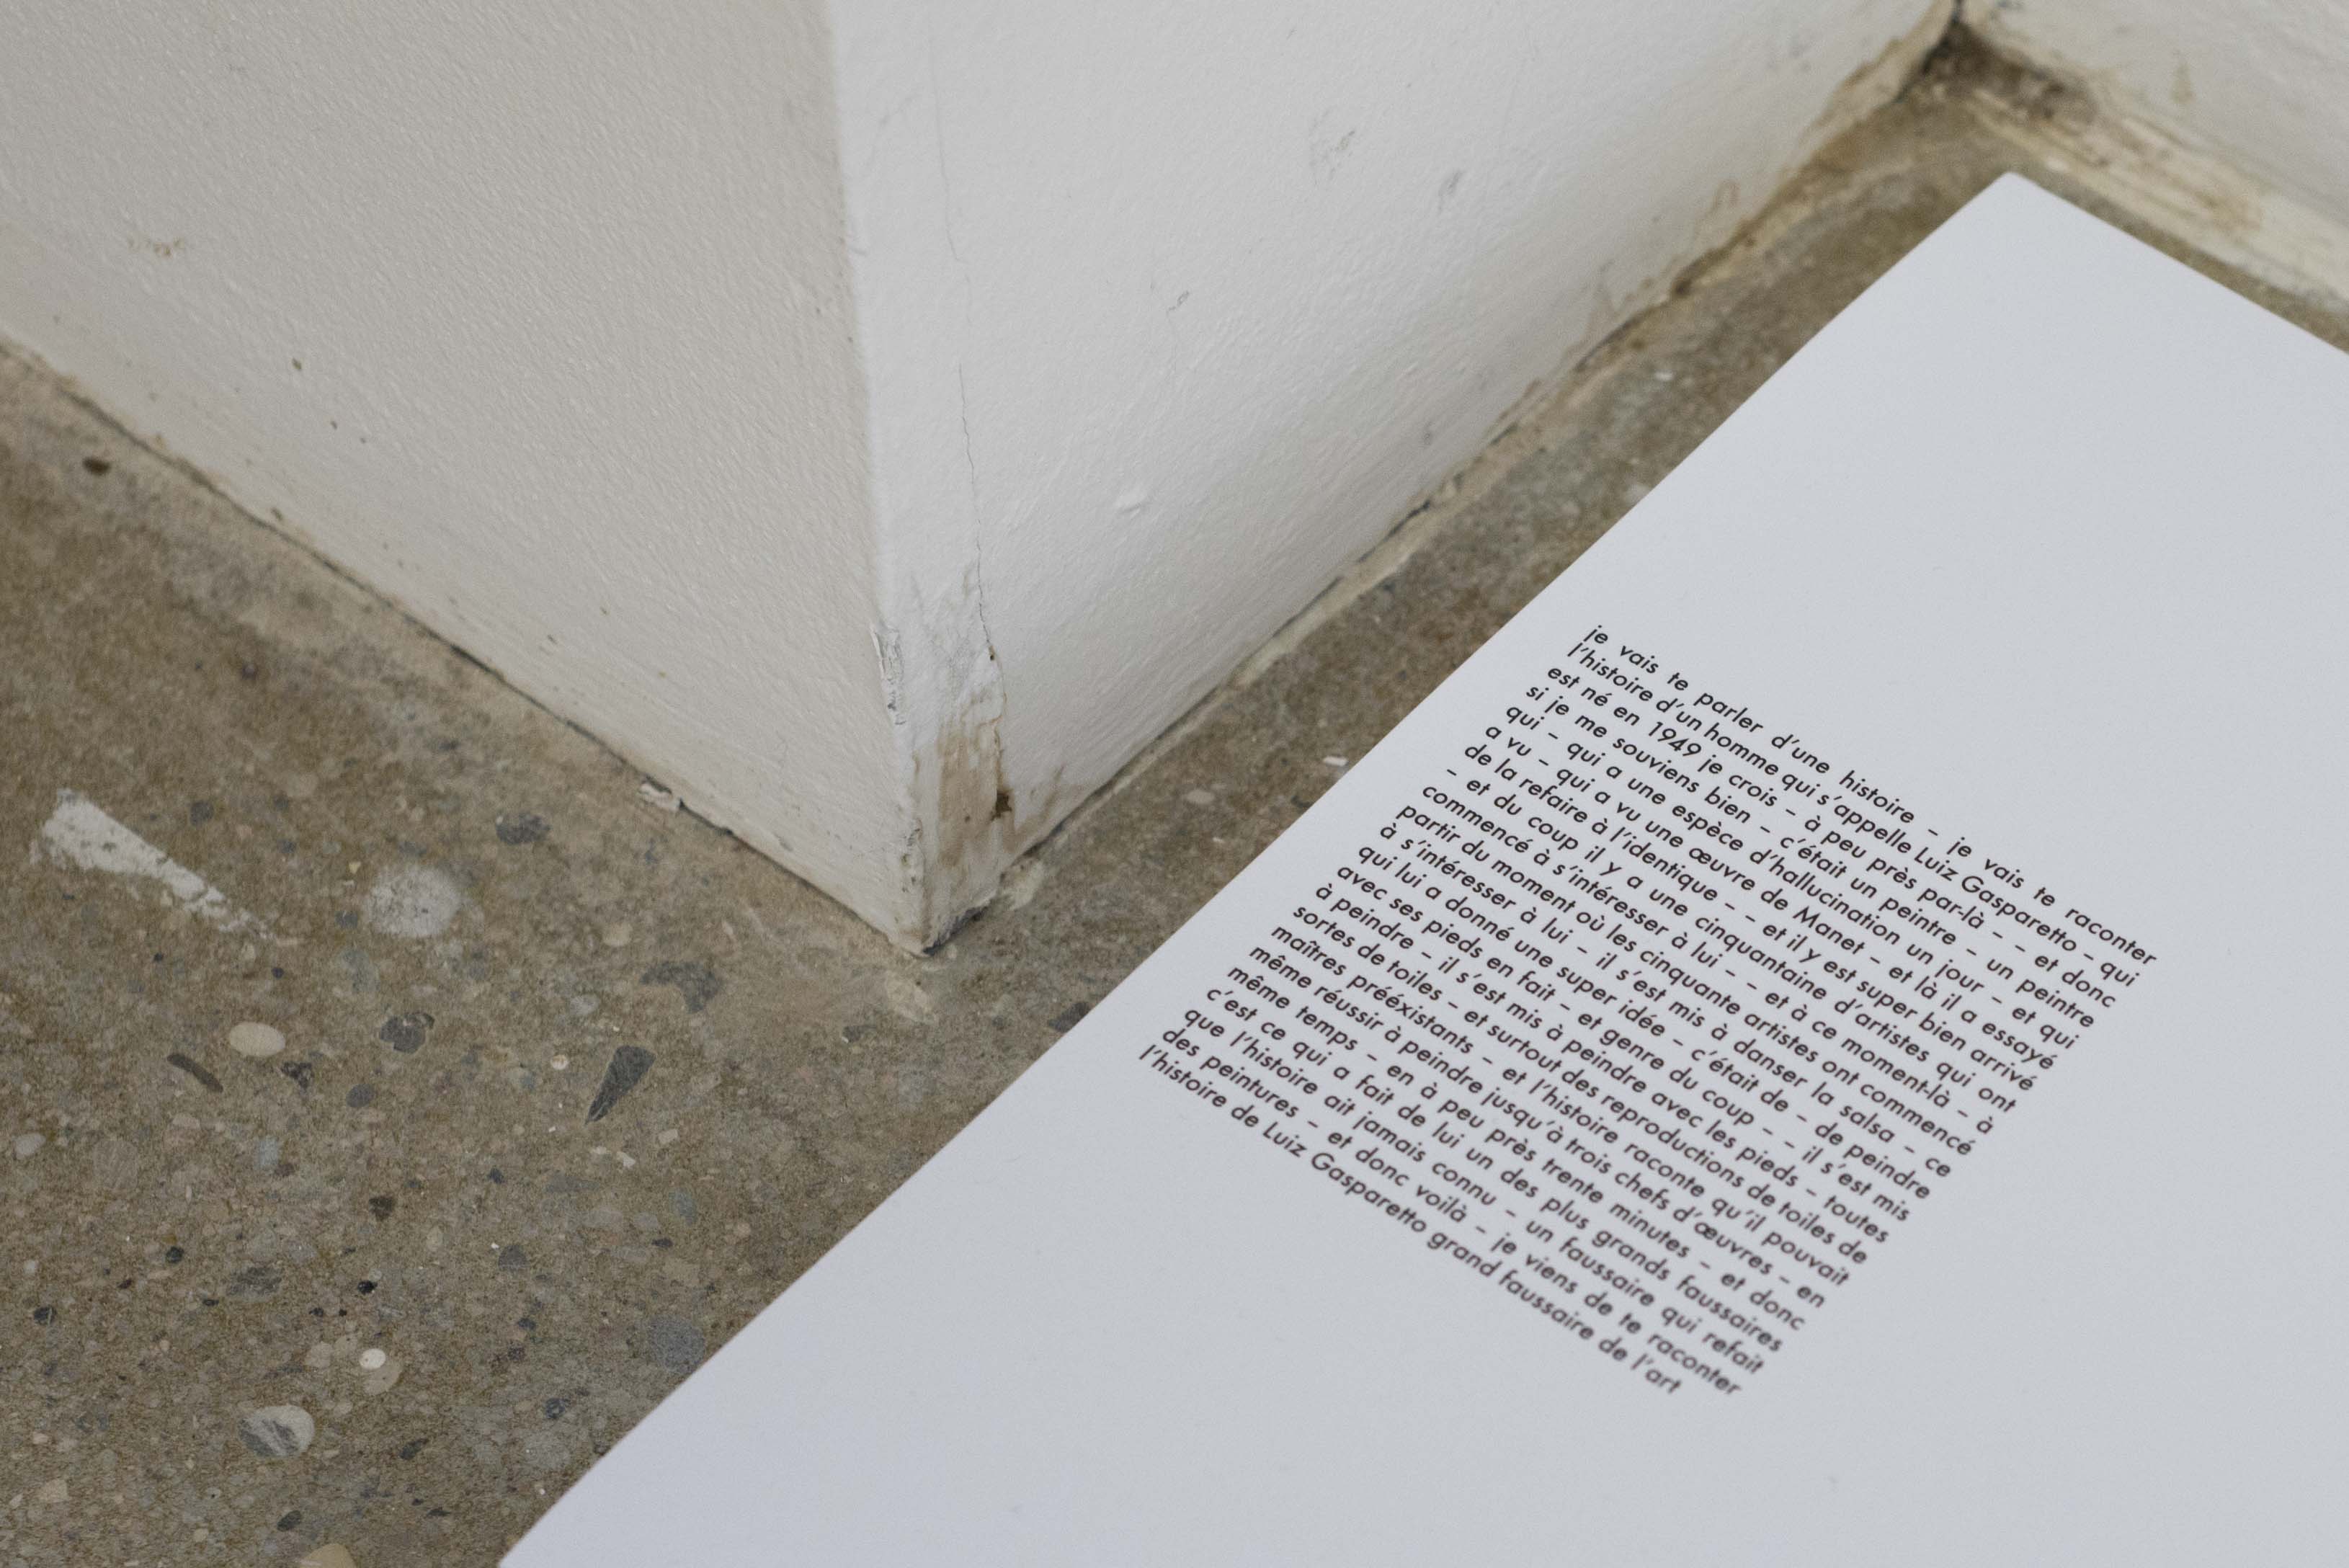 je vais te parler d'une histoire – je vais te raconter
l'histoire d'un homme qui s'appelle Luiz Gasparetto – qui
est né en 1949 je crois – à peu près par-là – – et donc
si je me souviens bien – c'était un peintre – un peintre
qui – qui a une espèce d'hallucination un jour – et qui
a vu – qui a vu une œuvre de Manet – et là il a essayé
de la refaire à l'identique – – et il y est super bien arrivé
– et du coup il y a une cinquantaine d'artistes qui ont
commencé à s'intéresser à lui – – et à ce moment-là – à
partir du moment où les cinquante artistes ont commencé
à s'intéresser à lui – il s'est mis à danser la salsa – ce
qui lui a donné une super idée – c'était de – de peindre
avec ses pieds en fait – et genre du coup – – il s'est mis
à peindre – il s'est mis à peindre avec les pieds – toutes
sortes de toiles – et surtout des reproductions de toiles de
maîtres prééxistants – et l'histoire raconte qu'il pouvait
même réussir à peindre jusqu'à trois chefs d'œuvres – en
même temps – en à peu près trente minutes – et donc
c'est ce qui a fait de lui un des plus grands faussaires
que l'histoire ait jamais connu – un faussaire qui refait
des peintures – et donc voilà – je viens de te raconter
l'histoire de Luiz Gasparetto grand faussaire de l'art